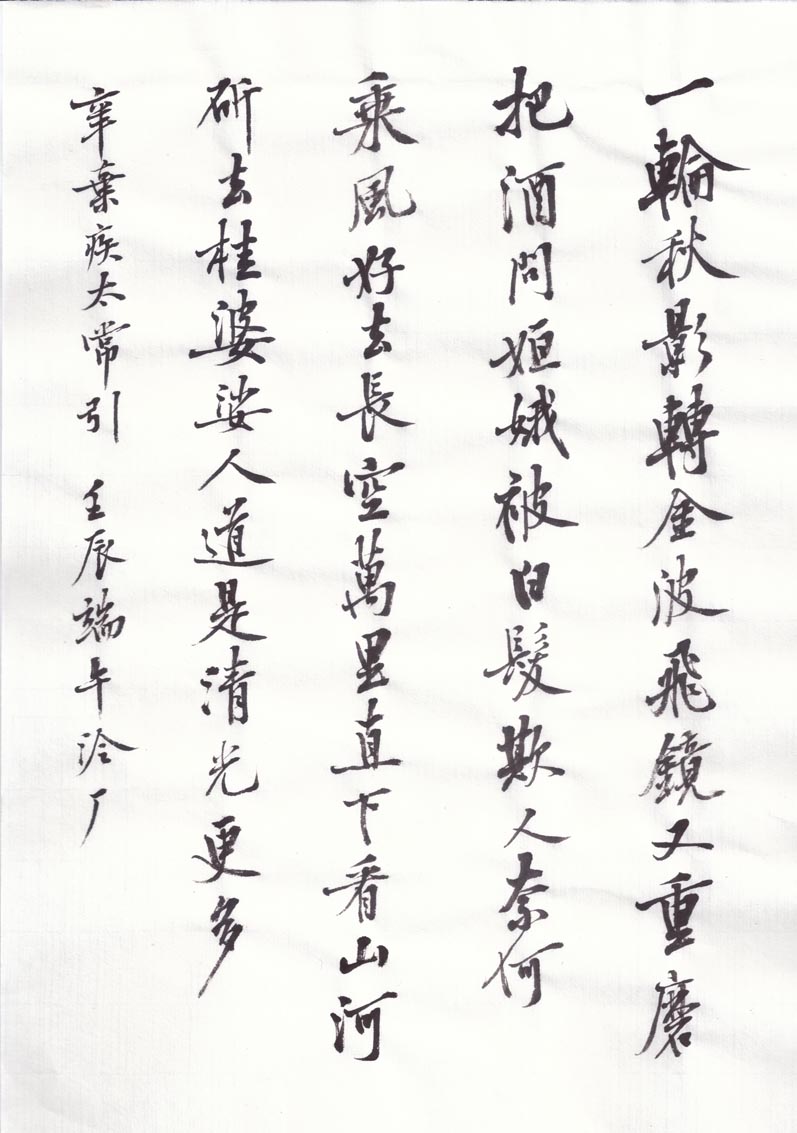 一輪秋影轉金波飛鏡又重磨
把酒問姮娥被白髮欺人奈何
乘風好去長空萬里直下看山河
斫去桂婆娑人道是清光更多
辛棄疾太常引 壬辰端午泠厂